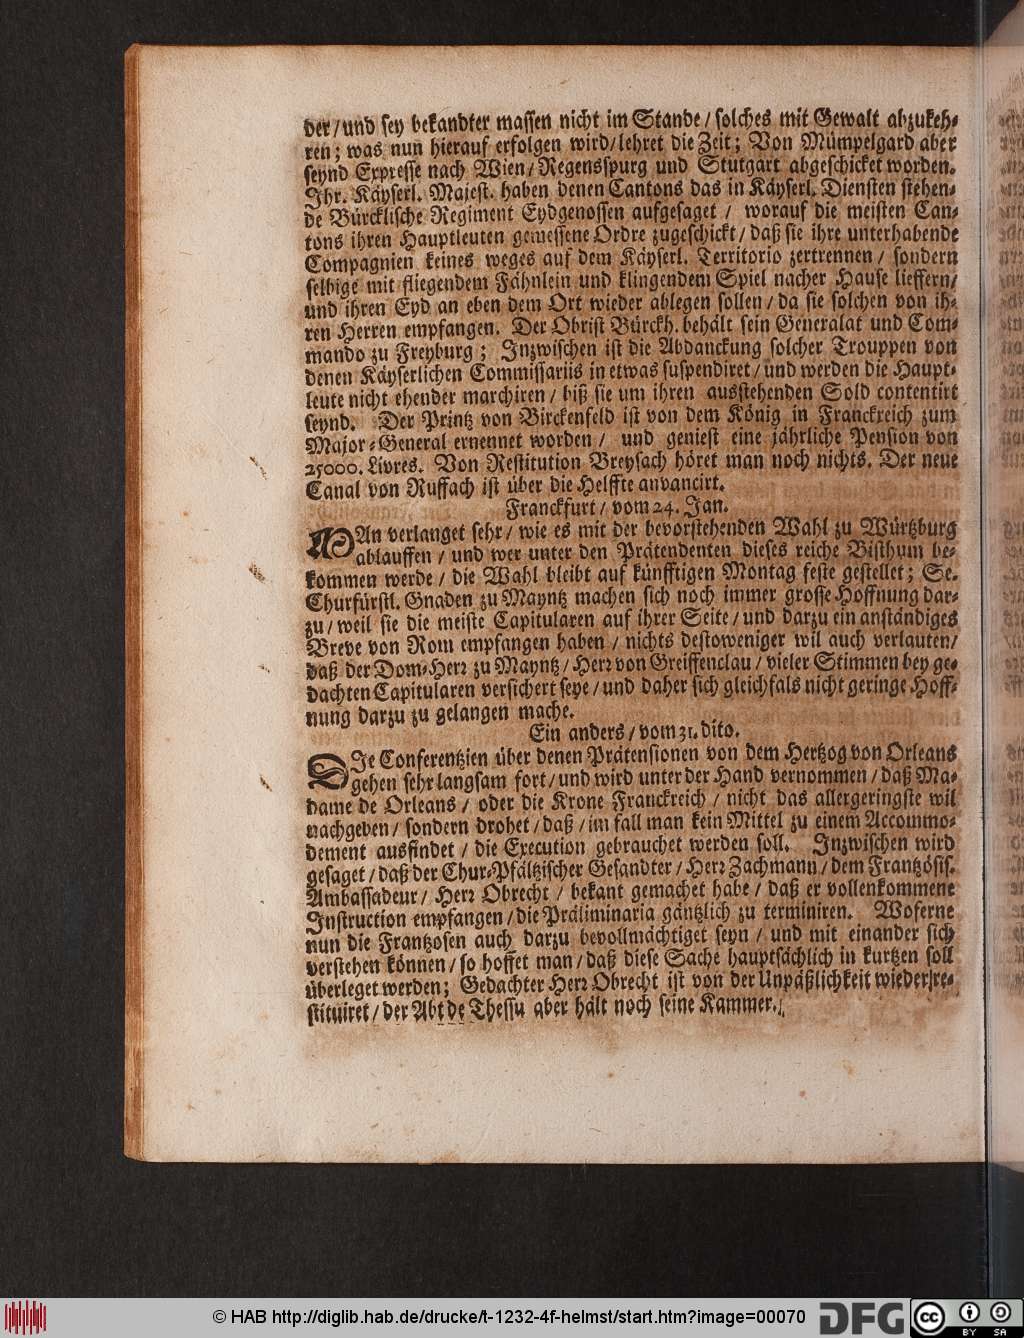 der / und sey bekandter massen nicht im Stande / solches mit Gewalt abzukeh-
ren; was nun hierauf erfolgen wird / lehret die Zeit; Von Mümpelgard aber
seynd Expresse nach Wien / Regensspurg und Stutgart abgeschicket worden.
Ihr. Käyserl. Majest. haben denen Cantons das in Käyserl. Diensten stehen-
de Bürcklische Regiment Eydgenossen aufgesaget / worauf die meisten Can-
tons ihren Hauptleuten gemessene Ordre zugeschickt / daß sie ihre unterhabende
Compagnien keines weges auf dem Käyserl. Territorio zertrennen / sondern
selbige mit fliegendem Fähnlein und klingendem Spiel nacher Hause lieffern /
und ihren Eyd an eben dem Ort wieder ablegen sollen / da sie solchen von ih-
ren Herren empfangen. Der Obrist Bürckh. behält sein Generalat und Com-
mando zu Freyburg; Inzwischen ist die Abdanckung solcher Trouppen von
denen Käyserlichen Commissariis in etwas suspendiret / und werden die Haupt-
leute nicht ehender marchiren / biß sie um ihren ausstehenden Sold contentirt
seynd. Der Printz von Birckenfeld ist von dem König in Franckreich zum
Major-General ernennet worden / und geniest eine jährliche Pension von
25000. Livres. Von Restitution Breysach höret man noch nichts. Der neue
Canal von Ruffach ist über die Helffte anvancirt.
Franckfurt / vom 24. Jan.
MAn verlanget sehr / wie es mit der bevorstehenden Wahl zu Würtzburg
ablauffen / und wer unter den Prätendenten dieses reiche Bisthum be-
kommen werde / die Wahl bleibt auf künfftigen Montag feste gestellet; Se.
Churfürstl. Gnaden zu Mayntz machen sich noch immer grosse Hoffnung dar-
zu / weil sie die meiste Capitularen auf ihrer Seite / und darzu ein anständiges
Breve von Rom empfangen haben / nichts destoweniger wil auch verlauten /
daß der Dom-Herr zu Mayntz / Herr von Greiffenclau / vieler Stimmen bey ge-
dachten Capitularen versichert seye / und daher sich gleichfals nicht geringe Hoff-
nung darzu zu gelangen mache.
Ein anders / vom 31. dito.
DIe Conferentzien über denen Prätensionen von dem Hertzog von Orleans
gehen sehr langsam fort / und wird unter der Hand vernommen / daß Ma-
dame de Orleans / oder die Krone Franckreich / nicht das allergeringste wil
nachgeben / sondern drohet / daß / im fall man kein Mittel zu einem Accommo-
dement ausfindet / die Execution gebrauchet werden soll. Inzwischen wird
gesaget / daß der Chur-Pfältzischer Gesandter / Herr Zachmann / dem Frantzösis.
Ambassadeur / Herr Obrecht / bekant gemachet habe / daß er vollenkommene
Instruction empfangen / die Präliminaria gäntzlich zu terminiren. Woferne
nun die Frantzosen auch darzu bevollmächtiget seyn / und mit einander sich
verstehen können / so hoffet man / daß diese Sache hauptsächlich in kurtzen soll
überleget werden; Gedachter Herr Obrecht ist von der Unpäßlichkeit wieder re-
stituiret / der Abt de Thessu aber hält noch seine Kammer.
© HAB http://diglib.hab.de/drucke/t-1232-4f-helmst/start.htm?image=00070 DFG cc BY SA